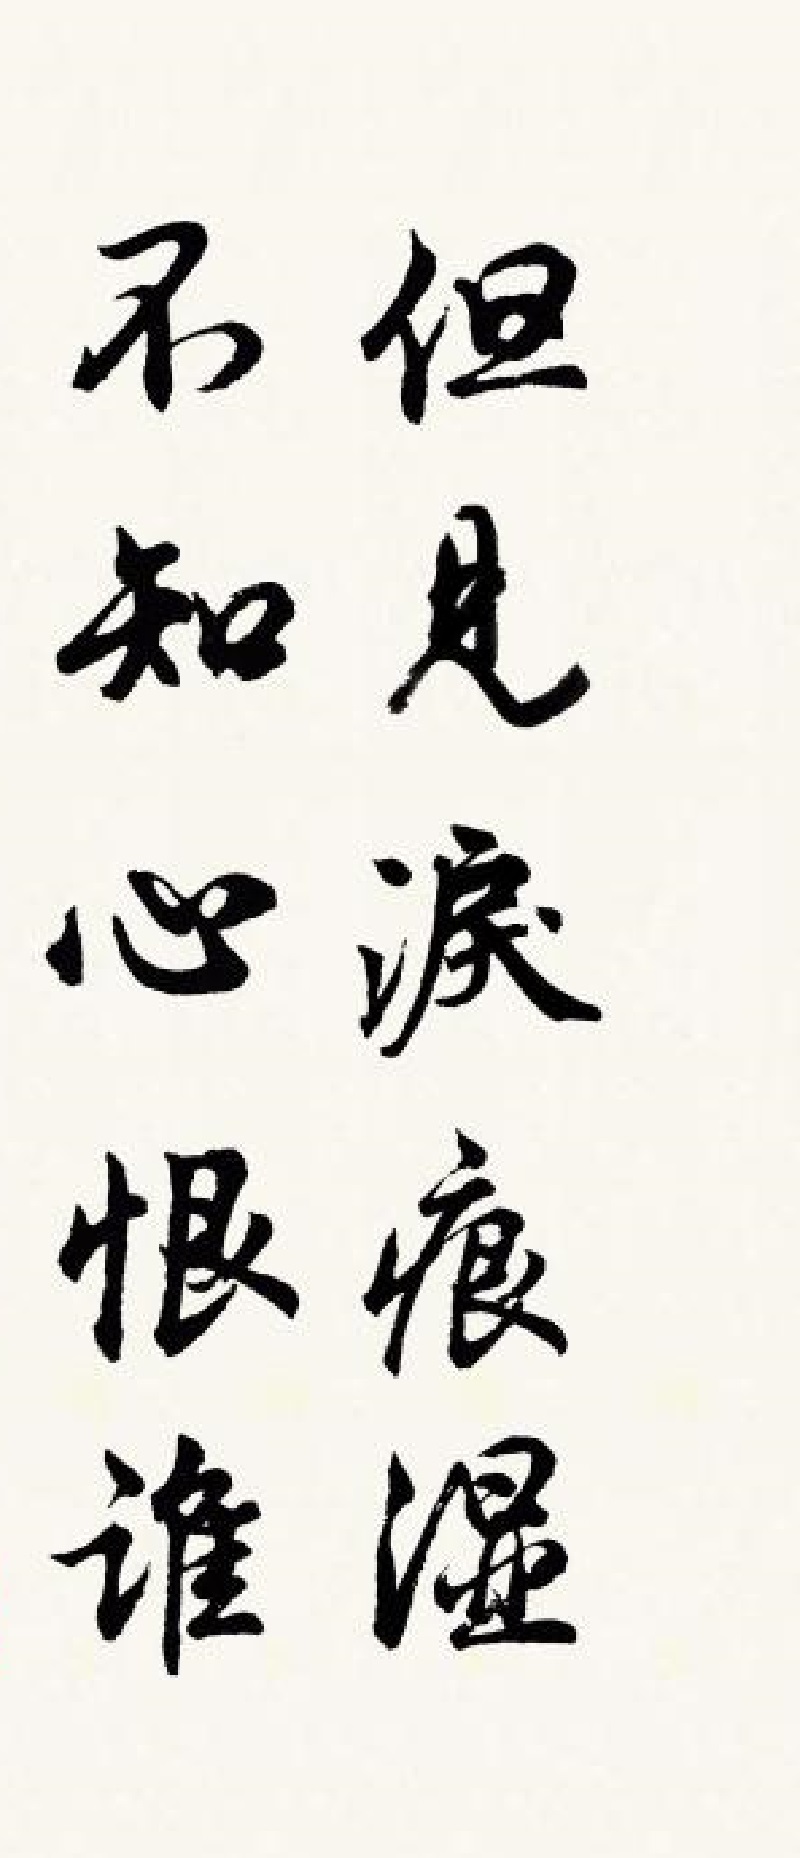 但見淚痕湿
不知心恨谁